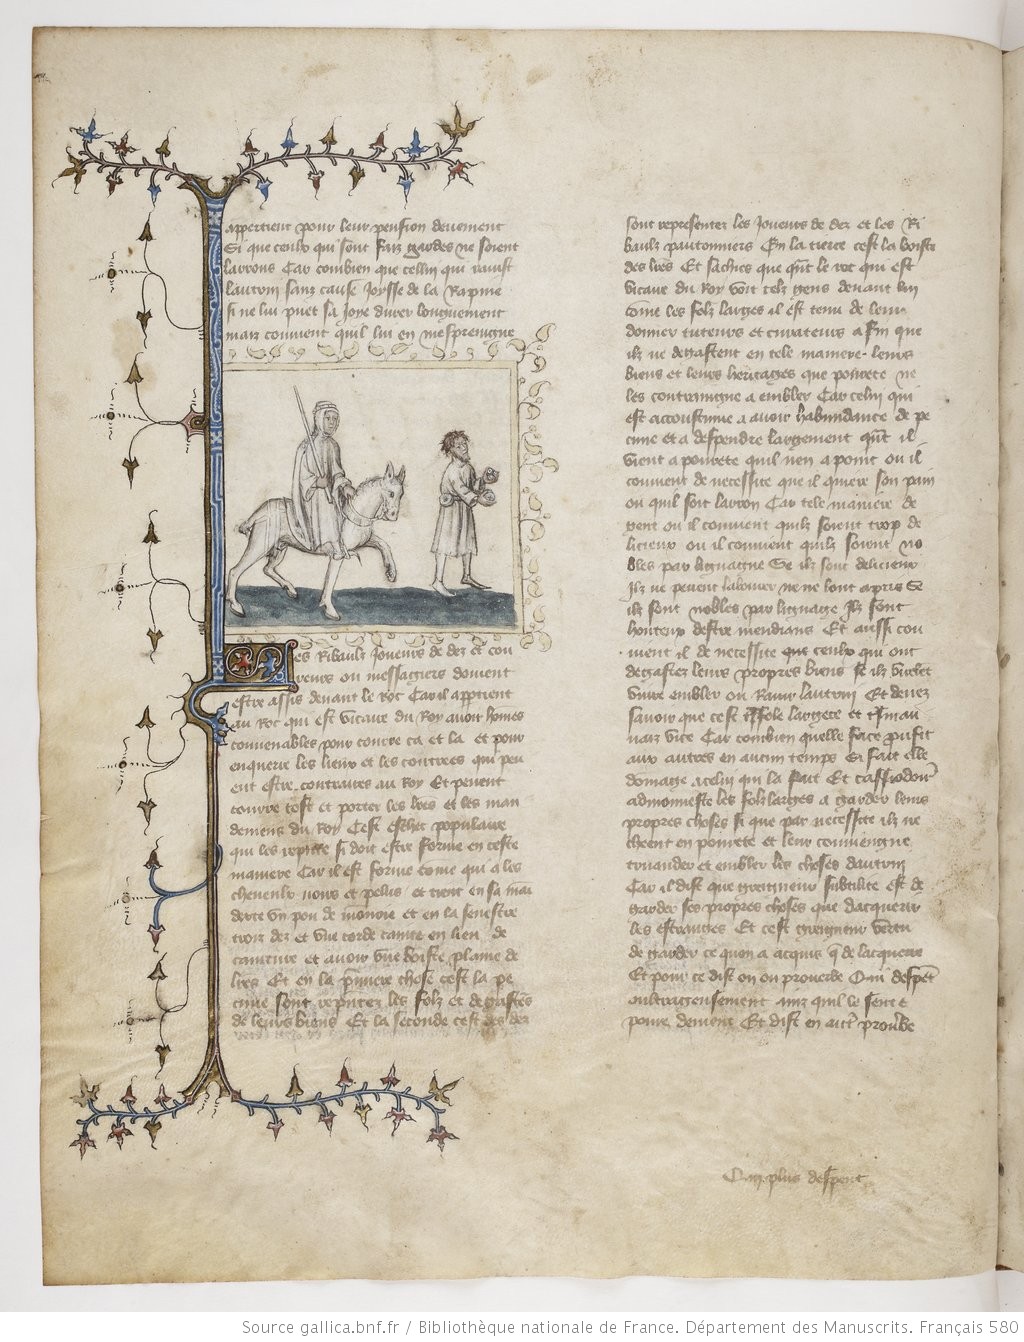 appertient pour leur pension deuement
Si que ceulx qui sont faiz gardes ne soient
larrons Car combien que cellui qui rauist
lautrui sanz cause Joysse de la Rapine
si ne lui puet sa Joye durer longuement
maiz conuient quil lui en mesprenigne
es Ribaulz Joueurs de dez et cou
reurs ou messagiers doiuent
estre assis deuant le roc Car il appertient
au Roc qui est vicaire du Roy auoir homes
conuenables pour courre ca et la et pour
enquerir les lieux et les contrees qui peu
ent estre contraires au Roy Et peuent
courre tost et porter les lres et les man
demens du Roy Cest eschec populaire
qui les repnte si doit estre forme en ceste
maniere Car il est forme come qui a les
cheueulx noirs et pelus et tient en sa mai
dexte vn pou de monoie et en la senestre
troiz dez et vne corde cainte en lieu de
cainture et auoir vne boiste plaine de
lres Et en la pmiere chose cest la pe
cune sont reputez les folz et degasteurs
de leurs biens Et la seconde cest des dez
sont representez les Joueurs de dez et les Ri
baulz pautonniers En la tierce cest la boiste
des lres Et sachies que qnt le roc qui est
vicaire du Roy voit telz gens deuant lui
come les folz larges il est tenu de leur
donner tuteurs et curateurs a fin que
ilz ne degastent en tele maniere leurs
biens et leurs heritages que pourete ne
les contraingne a embler Car celui qui
est accoustume a auoir habundance de pe
cune et a despendre largement qnt il
vient a pourete quil nen a point ou il
conuient de necessite que il quiere son pain
ou quil soit larron Car tele maniere de
gent ou il conuient quilz soient trop de
licieux ou il conuient quilz soient no
bles par lignaigne Se ilz sont delicieux
Ilz ne peuent labourer ne ne lont apris Se
ilz sont nobles par lignaige Ilz sont
honteux destre mendians Et aussi con
uient il de necessite que ceulx qui ont
degastez leurs propres biens se ilz vuelet
viure embler ou Rauir lautrui Et deuez
sauoir que cest tresfole largece et tresmau
uaiz vice Car combien quelle face proufit
aux autres en aucun temps Si fait elle
domage a celui qui la fait Et cassiodore
admonneste les folz larges a garder leurs
propres choses si que par necessite ilz ne
cheent en pourete et leur conuiengne
truander et embler les choses dautrui
Car il dist que greigneur subtilite est de
garder ses propres choses que dacquerir
les estranges Et cest greigneur vertu
de garder ce quon a acquis que de lacquerir
Et pour ce dist on ou prouerbe Qui despent
oultrageusement ainz quil le sente
poure deuient Et dist en autre prouerbe
Qui plus despent
Source gallica.bnf.fr / Bibliothèque nationale de France. Département des Manuscrits. Français 580